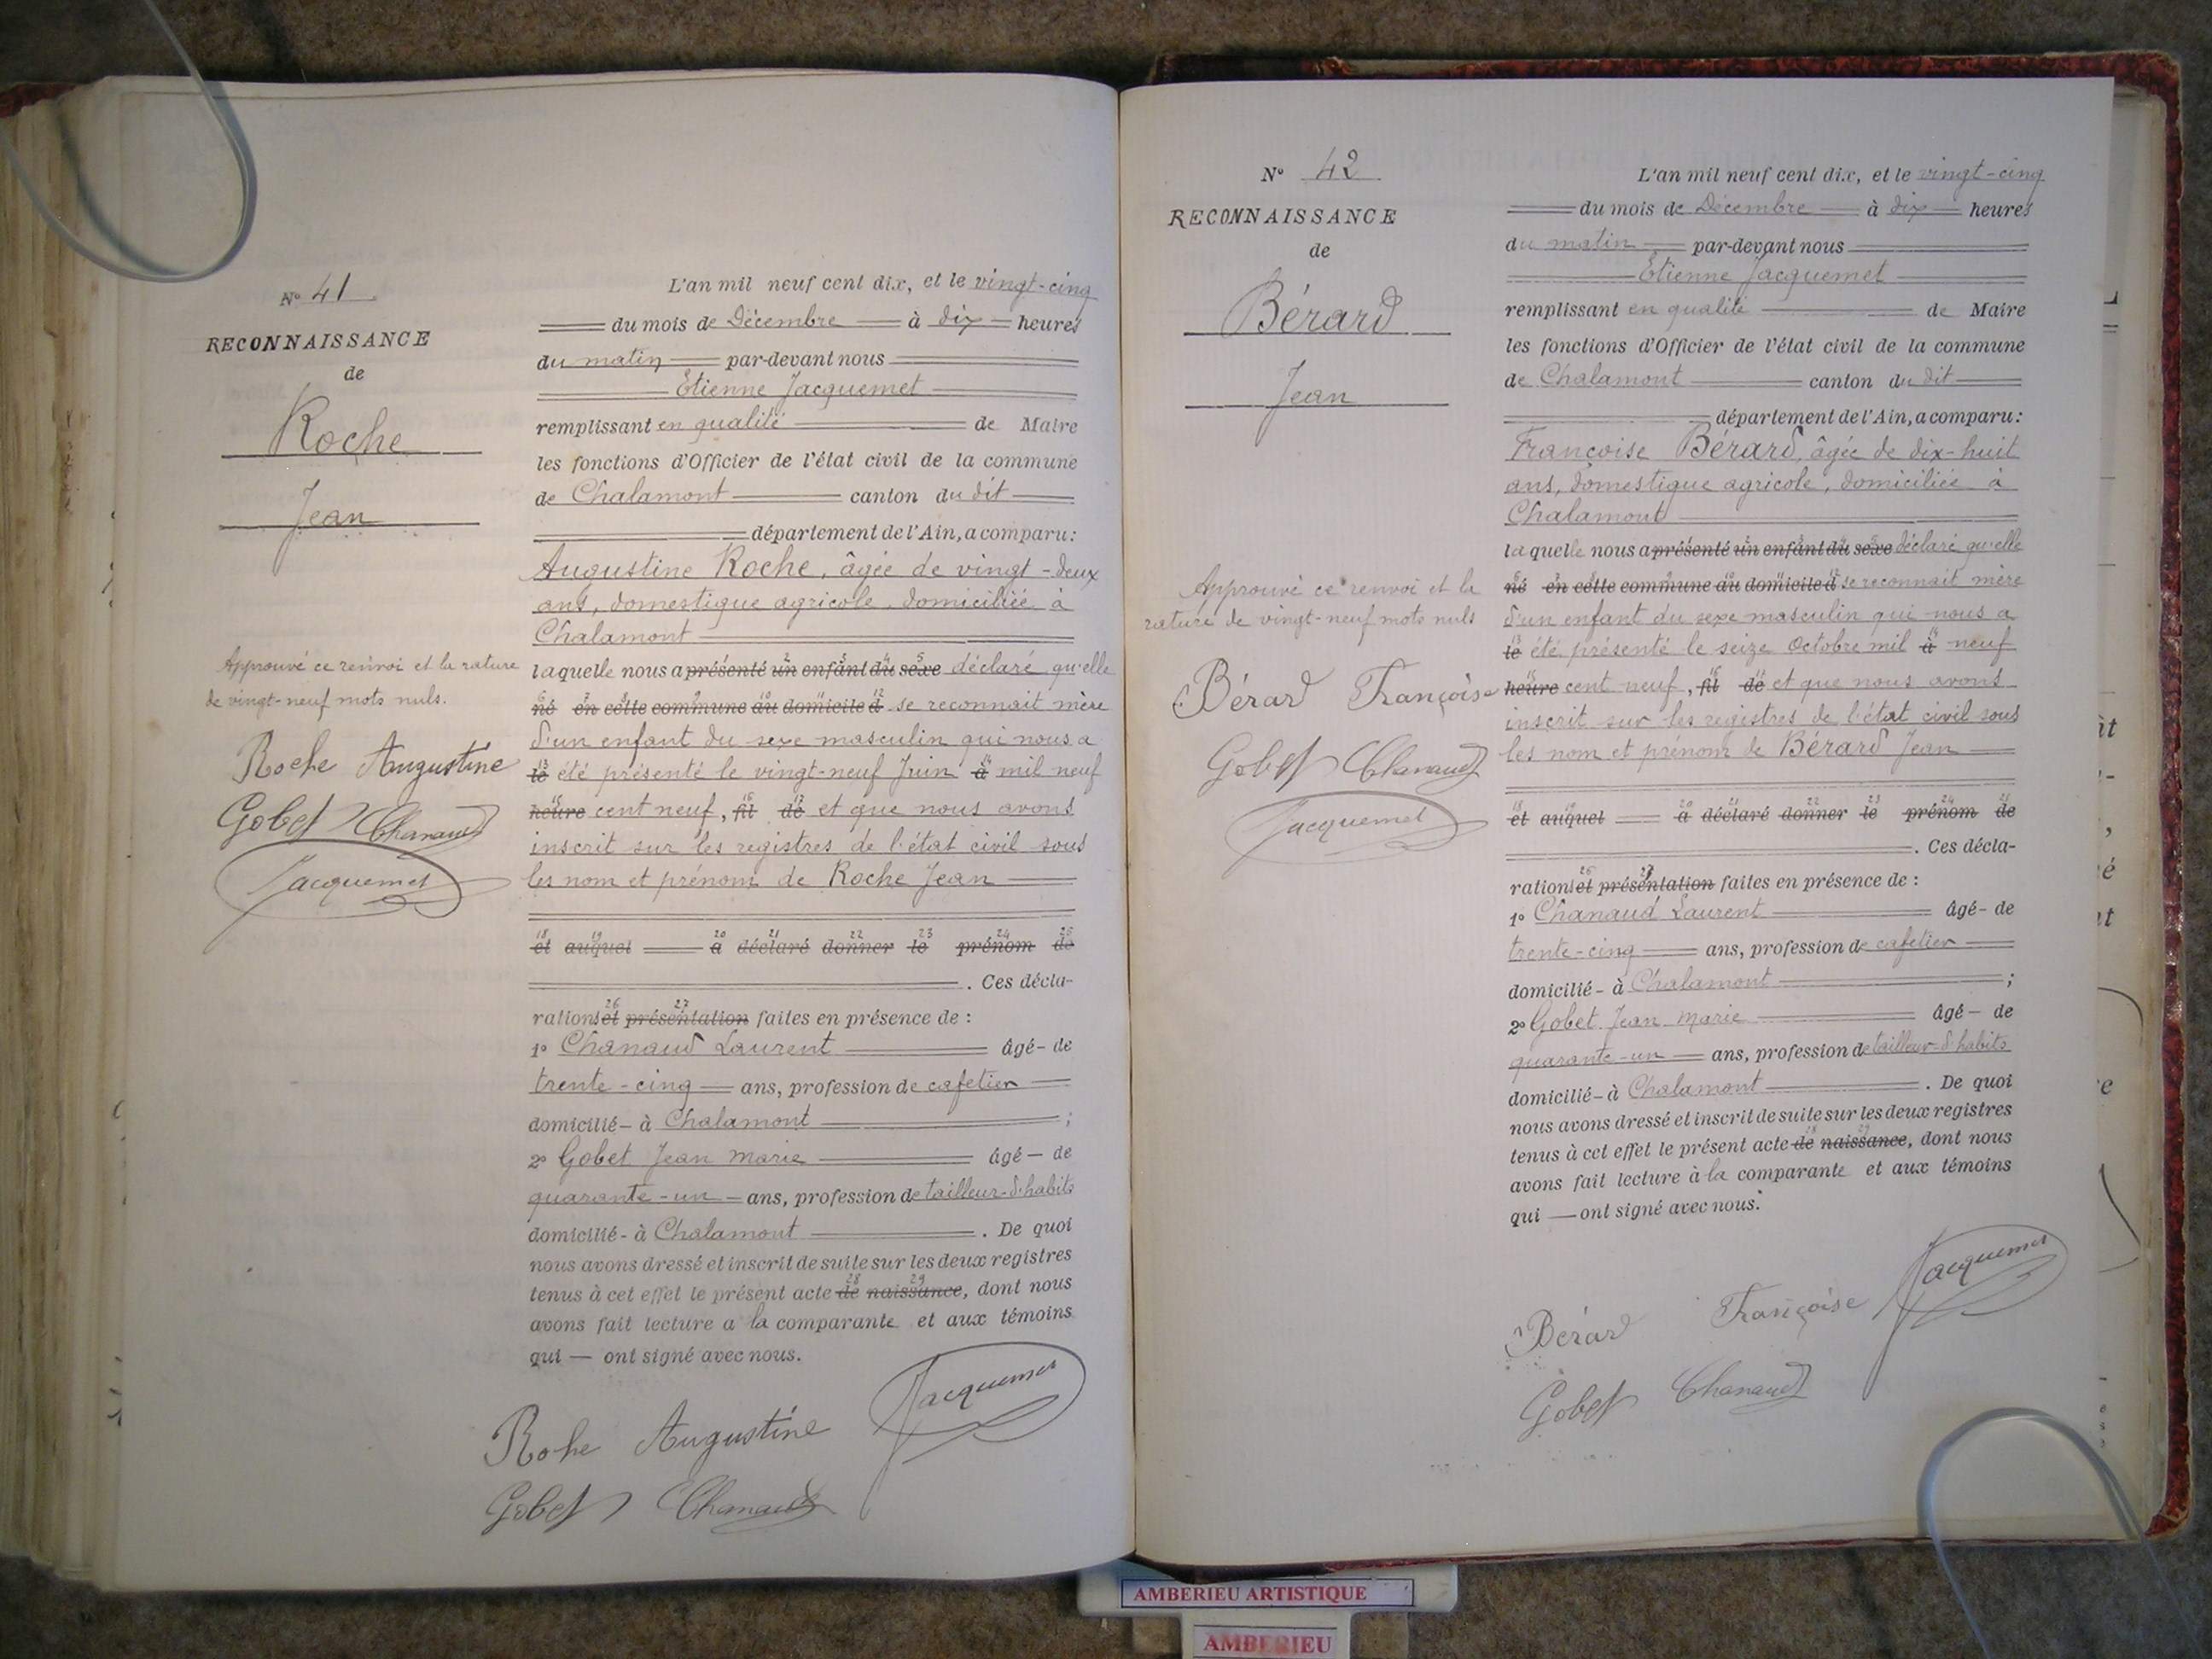 N° 41
RECONNAISSANCE
de
Roche
Jean
Approuvé ce renvoi et la rature
de vingt-neuf mots nuls.
Roche Augustine
Gobet Chanaud
Jacquemet
L'an mil neuf cent dix, et le vingt-cinq
du mois de Décembre à dix heures
du matin par-devant nous
Etienne Jacquemet
remplissant en qualité de Maire
les fonctions d'Officier de l'état civil de la commune
de Chalamont canton du dit
département de l'Ain, a comparu:
Augustine Roche, âgée de vingt-deux
ans, domestique agricole, domiciliée à
Chalamont
laquelle nous a présenté un enfant du sexe déclaré qu'elle
né en cette commune au domicile d se reconnait mère
d'un enfant du sexe masculin qui nous a
le été présenté le vingt-neuf Juin à mil neuf
heure cent neuf, fil de et que nous avons
inscrit sur les registres de l'état civil sous
les nom et prénom de Roche Jean
et auquel a déclaré donner le prénom de
. Ces décla-
rations et présentation faites en présence de :
1° Chanaud Laurent âgé- de
trente-cinq ans, profession de cafetier
domicilié- à Chalamont ;
2° Gobet Jean Marie âgé- de
quarante-un ans, profession de tailleur-d'habits
domicilié- à Chalamont . De quoi
nous avons dressé et inscrit de suite sur les deux registres
tenus à cet effet le présent acte de naissance, dont nous
avons fait lecture a la comparante et aux témoins
qui — ont signé avec nous.
Jacquemet
Rohe Augustine
Gobet Chanaud
N° 42
RECONNAISSANCE
de
Bérard
Jean
Approuvé ce renvoi et la
rature de vingt-neuf mots nuls
Bérard Françoise
Gobet Chanaud
Jacquemet
L'an mil neuf cent dix, et le vingt-cinq
du mois de Décembre à dix heures
du matin par-devant nous
Etienne Jacquemet
remplissant en qualité de Maire
les fonctions d'Officier de l'état civil de la commune
de Chalamont canton du dit
département de l'Ain, a comparu:
Françoise Bérard, âgée de dix-huit
ans, domestique agricole, domiciliée à
Chalamont
laquelle nous a présenté un enfant du sexe déclaré qu'elle
né en cette commune au domicile d se reconnait mère
d'un enfant du sexe masculin qui nous a
le été présenté le seize Octobre mil à neuf
heure cent neuf, fil de et que nous avons
inscrit sur les registres de l'état civil sous
les nom et prénom de Bérard Jean
et auquel a déclaré donner le prénom de
. Ces décla-
rations et présentation faites en présence de :
1° Chanaud Laurent âgé- de
trente-cinq ans, profession de cafetier
domicilié- à Chalamont ;
2° Gobet Jean Marie âgé- de
quarante-un ans, profession de tailleur-d'habits
domicilié- à Chalamont . De quoi
nous avons dressé et inscrit de suite sur les deux registres
tenus à cet effet le présent acte de naissance, dont nous
avons fait lecture à la comparante et aux témoins
qui — ont signé avec nous.
Jacquemet
Bérard Françoise
Gobet Chanaud
AMBERIEU ARTISTIQUE
AMBERIEU